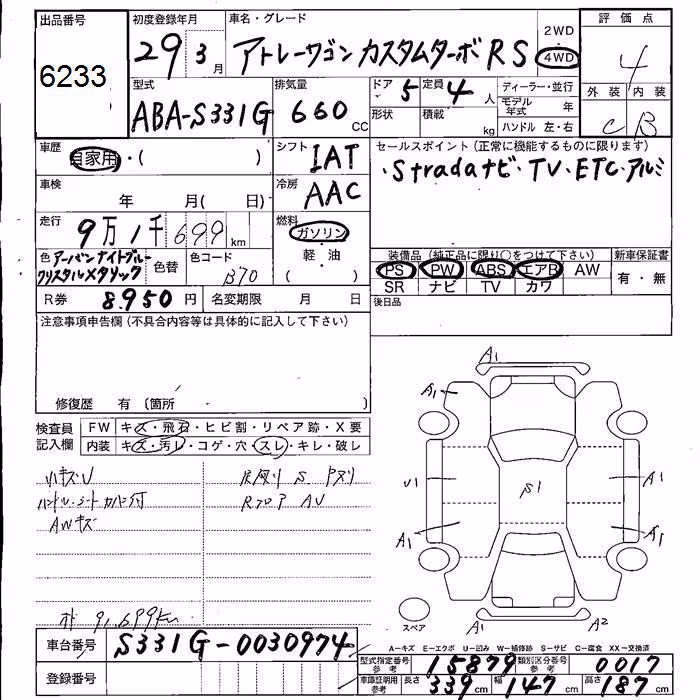 出品番号
6233
初度登録年月
29 3 月
車名・グレード
アトレーワゴン カスタムターボRS
2WD
・
4WD
評価点
4
外装 内装
C B
型式
ABA-S331G
排気量
660 CC
ドア 5
定員 4 人
形状
積載 kg
ディーラー・並行
モデル年式 年
ハンドル 左・右
車歴
自家用・( )
シフト
IAT
セールスポイント(正常に機能するものに限ります)
・Stradaナビ・TV・ETC・アルミ
車検
年 月( 日)
冷房
AAC
走行
9万1千699km
燃料
ガソリン
軽・油
( )
色 アーバンナイトブルークリスタルメタリック
色替
色コード
B70
装備品(純正品に限り○をつけて下さい)
PS PW ABS エアB AW
SR ナビ TV カワ
新車保証書
有・無
R券 8950円
名変期限 月 日
後日品
注意事項申告欄(不具合内容等は具体的に記入して下さい)
修復歴 有(箇所 )
検査員記入欄
FW キズ・飛石・ヒビ割・リペア跡・X要
内装 キズ・汚レ・コゲ・穴・スレ・キレ・破レ
小キズU
ハンドル、シートカバー付
AWキズ
Rフロア AU
91,699km
A1
A1
U1
S1
A1
A1
A1
A1
A2
スペア
A-キズ E-エクボ U-凹み W-補修跡 S-サビ C-腐食 XX-交換済
車台番号
S331G-0030974
登録番号
型式指定番号 参考 15879
類別区分番号 参考 0017
車庫証明用 参考
長さ 339 cm
幅 147 cm
高さ 187 cm